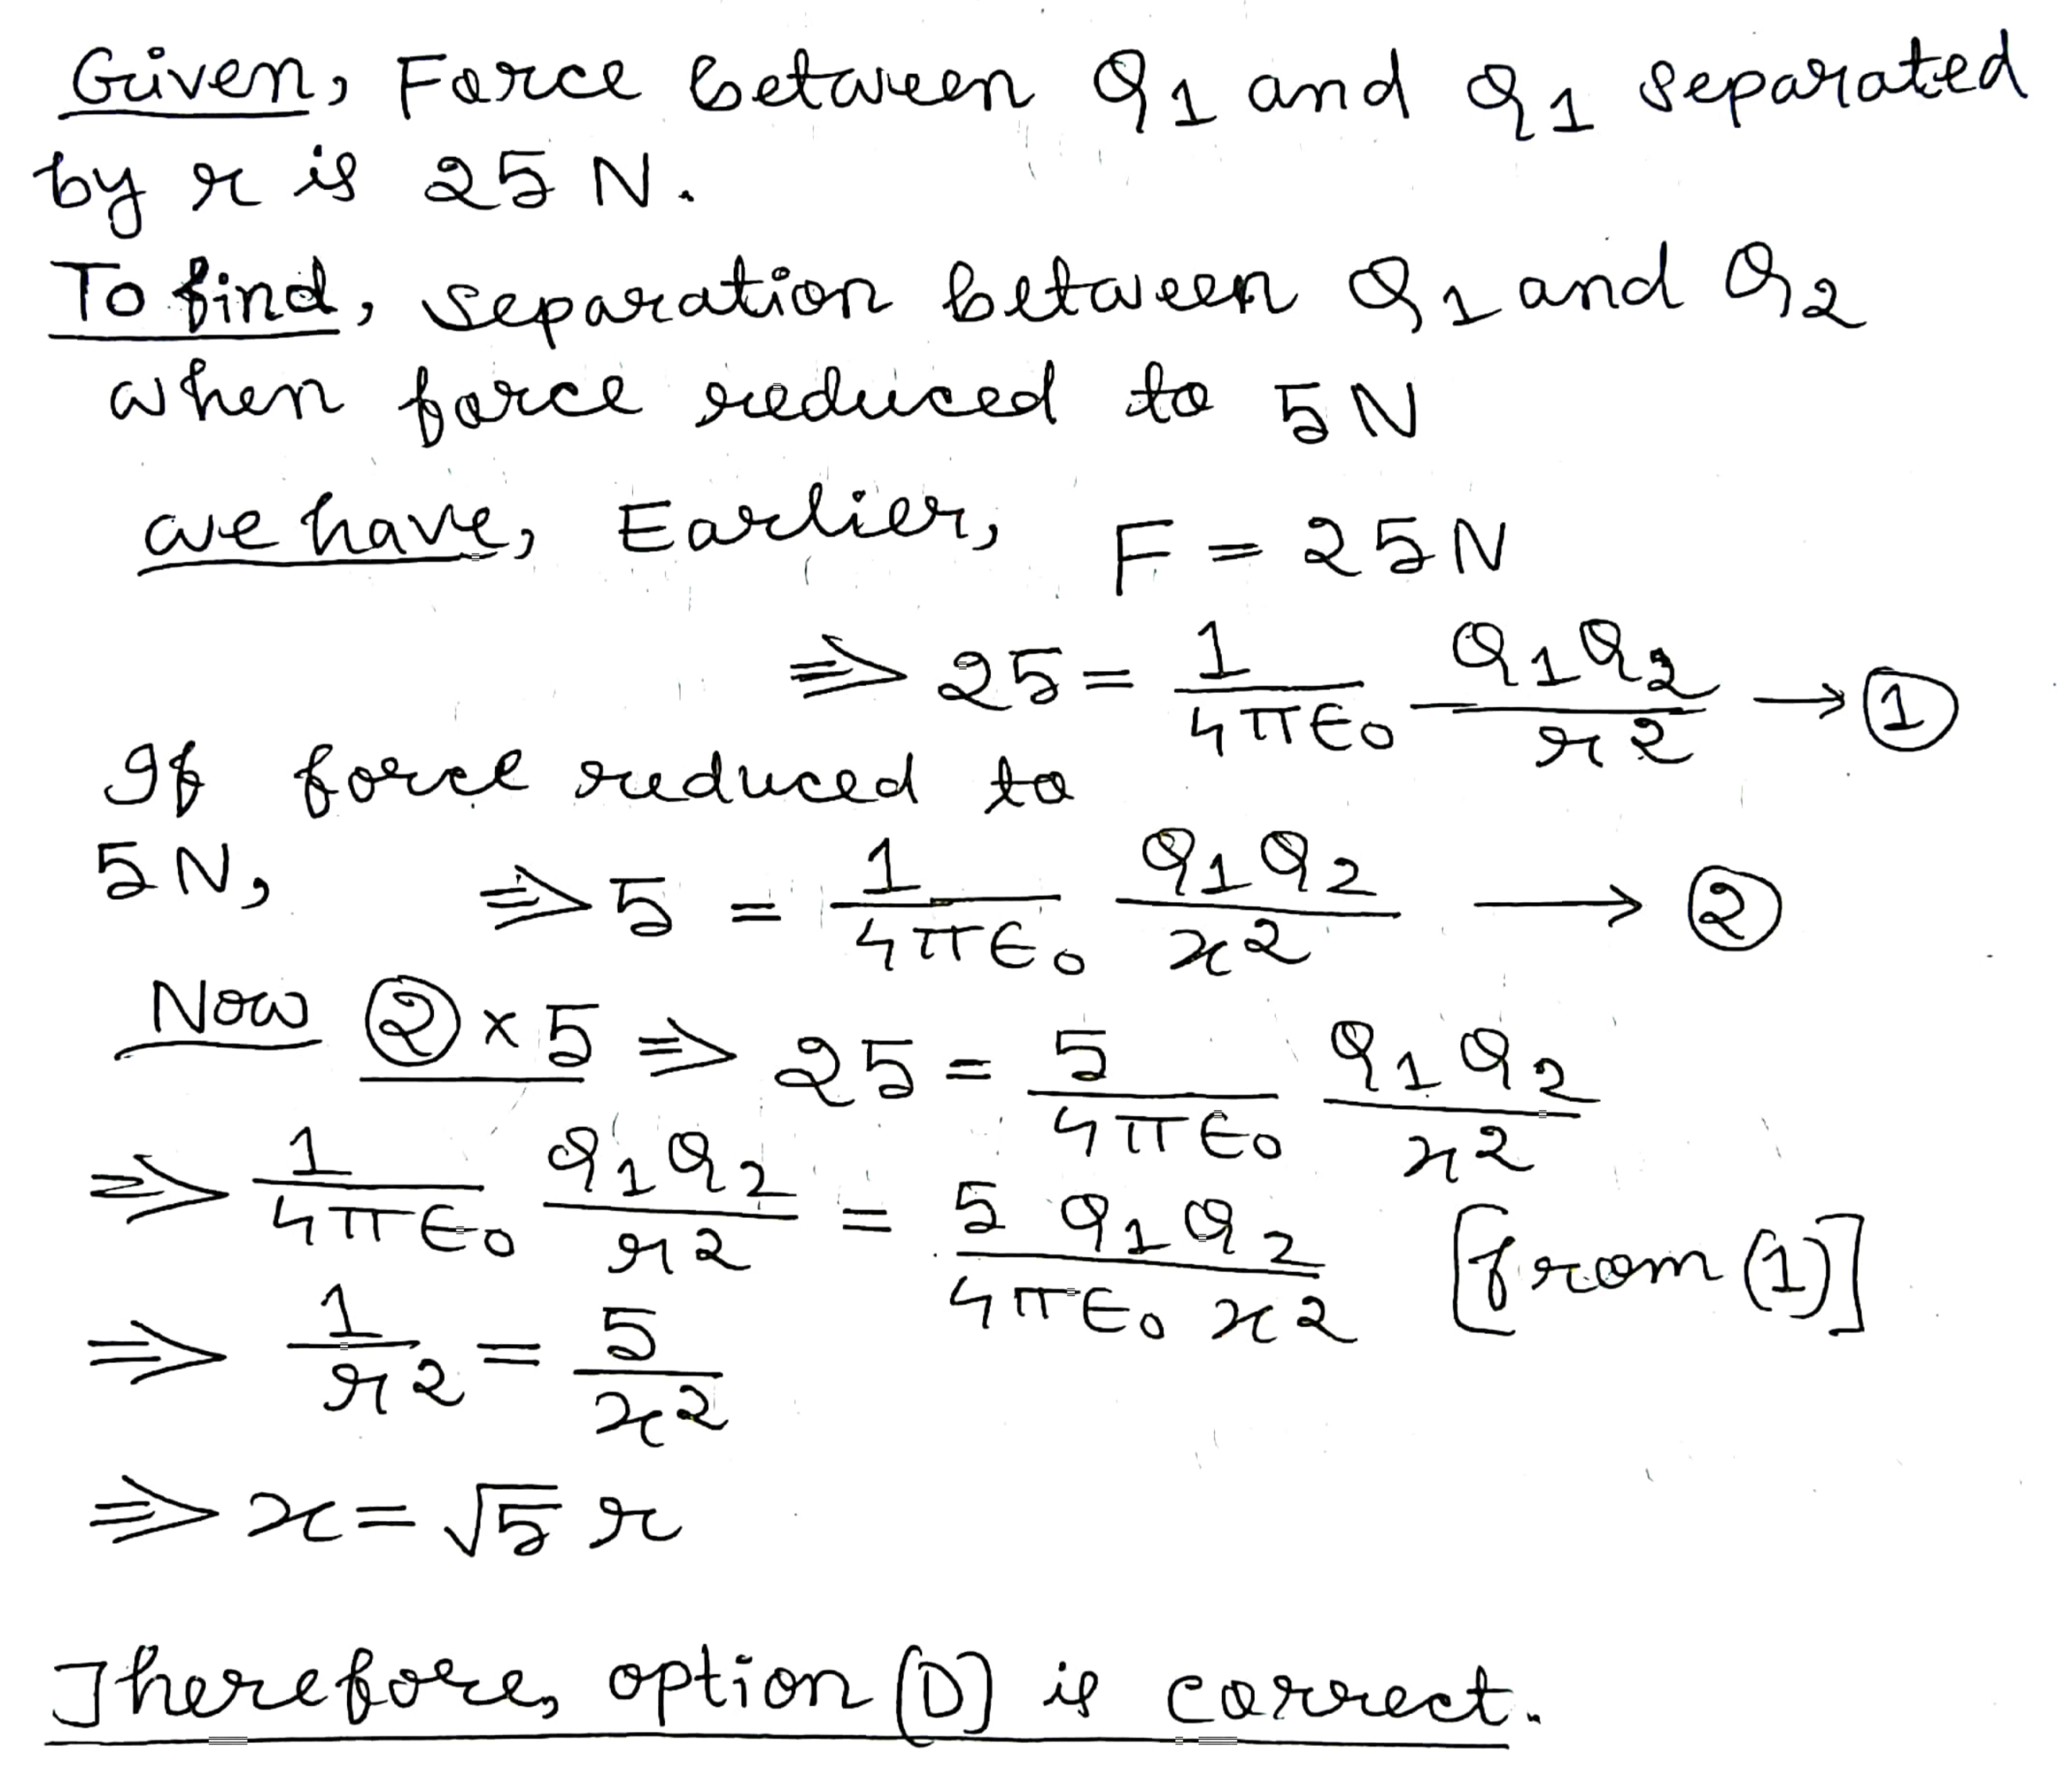 Given, Force between Q1 and Q1 separated
by r is 25 N.
To find, separation between Q1 and Q2
when force reduced to 5N
we have, Earlier, F = 25N
⇒ 25 = 1/4πϵ0 Q1Q2/r2 → ①
If force reduced to
5N, ⇒ 5 = 1/4πϵ0 Q1Q2/x2 → ②
Now ② × 5 ⇒ 25 = 5/4πϵ0 Q1Q2/x2
⇒ 1/4πϵ0 Q1Q2/r2 = 5 Q1Q2/4πϵ0 x2 [from (1)]
⇒ 1/r2 = 5/x2
⇒ x = √5 r
Therefore, option (D) is correct.